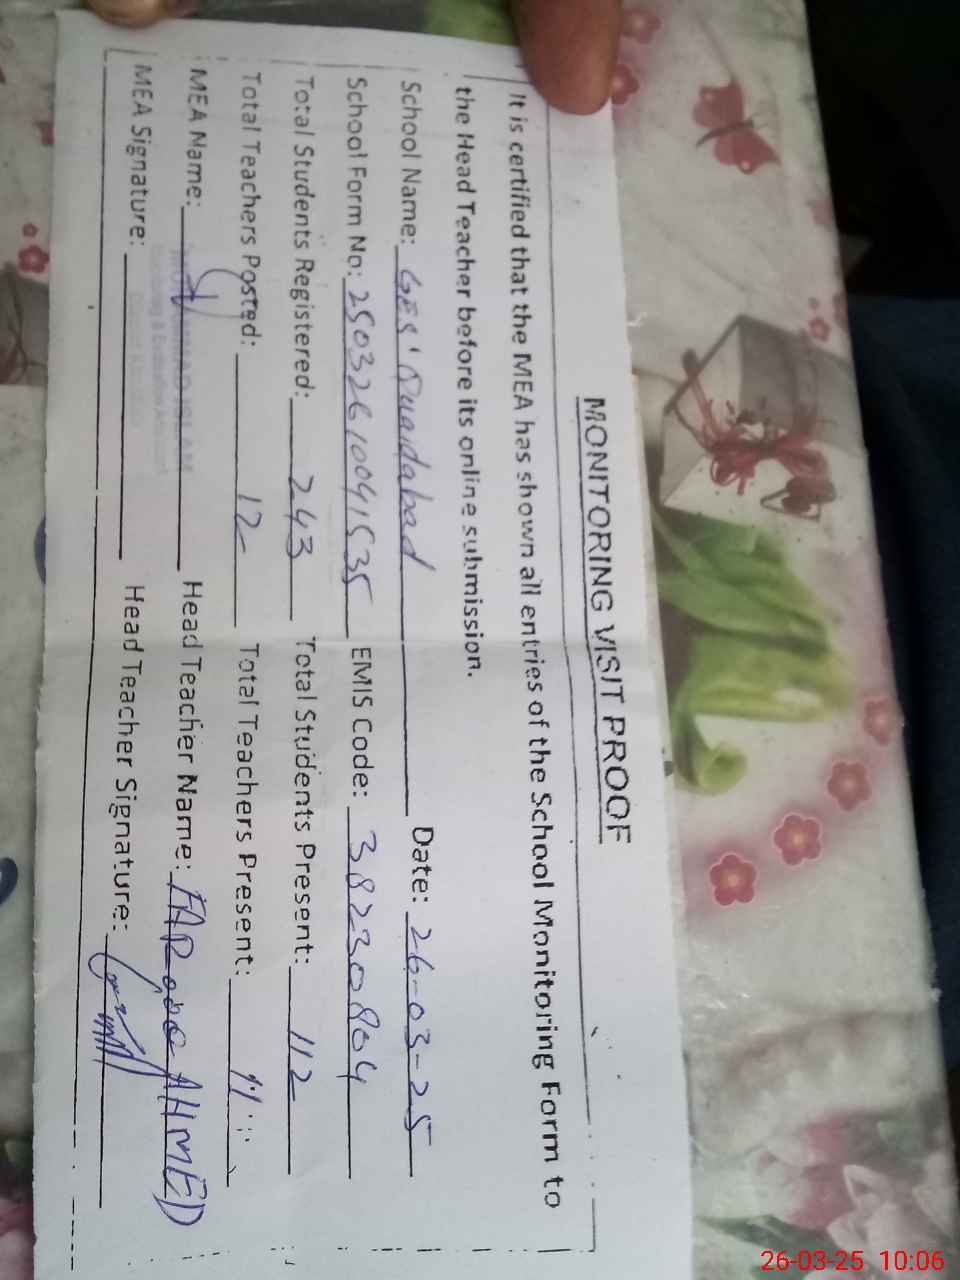 MONITORING VISIT PROOF
It is certified that the MEA has shown all entries of the School Monitoring Form to
the Head Teacher before its online submission.
School Name: GES Quaidabad Date: 26-03-25
School Form No: 25032610041535 EMIS Code: 38230804
Total Students Registered: 243 Total Students Present: 112
Total Teachers Posted: 12 Total Teachers Present: 11
MEA Name: MUHAMMAD ISLAM Head Teacher Name: FAROOQ AHMED
MEA Signature: Head Teacher Signature:
26-03-25 10:06